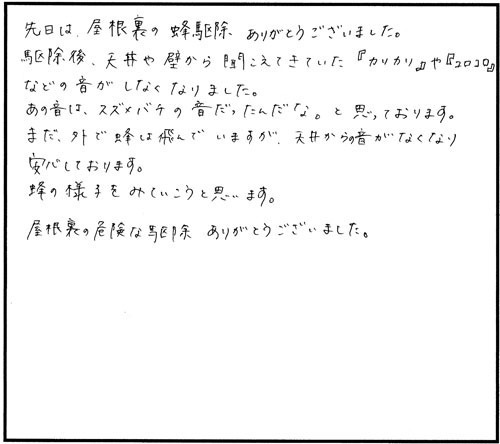 先日は、屋根裏の 蜂駆除 ありがとうございました。
駆除後、天井や 壁から 聞こえてきていた『カリカリ』や『コロコロ』
などの音が しなく なりました。
あの音は、スズメバチの 音だったんだな。と 思っております。
まだ、外で 蜂は飛んで いますが、天井からの音がなくなり
安心しております。
蜂の様子をみていこうと思います。
屋根裏の危険な駆除 ありがとうございました。